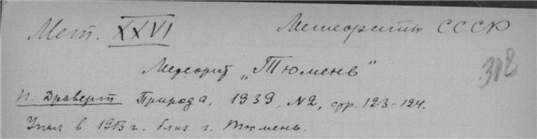 Мет. XXVI Метеориты СССР
Метеорит „Тюмень"
318
П. Драверт Природа, 1939, №2, стр. 123-124.
Упал в 1903 г. близ г. Тюмень.